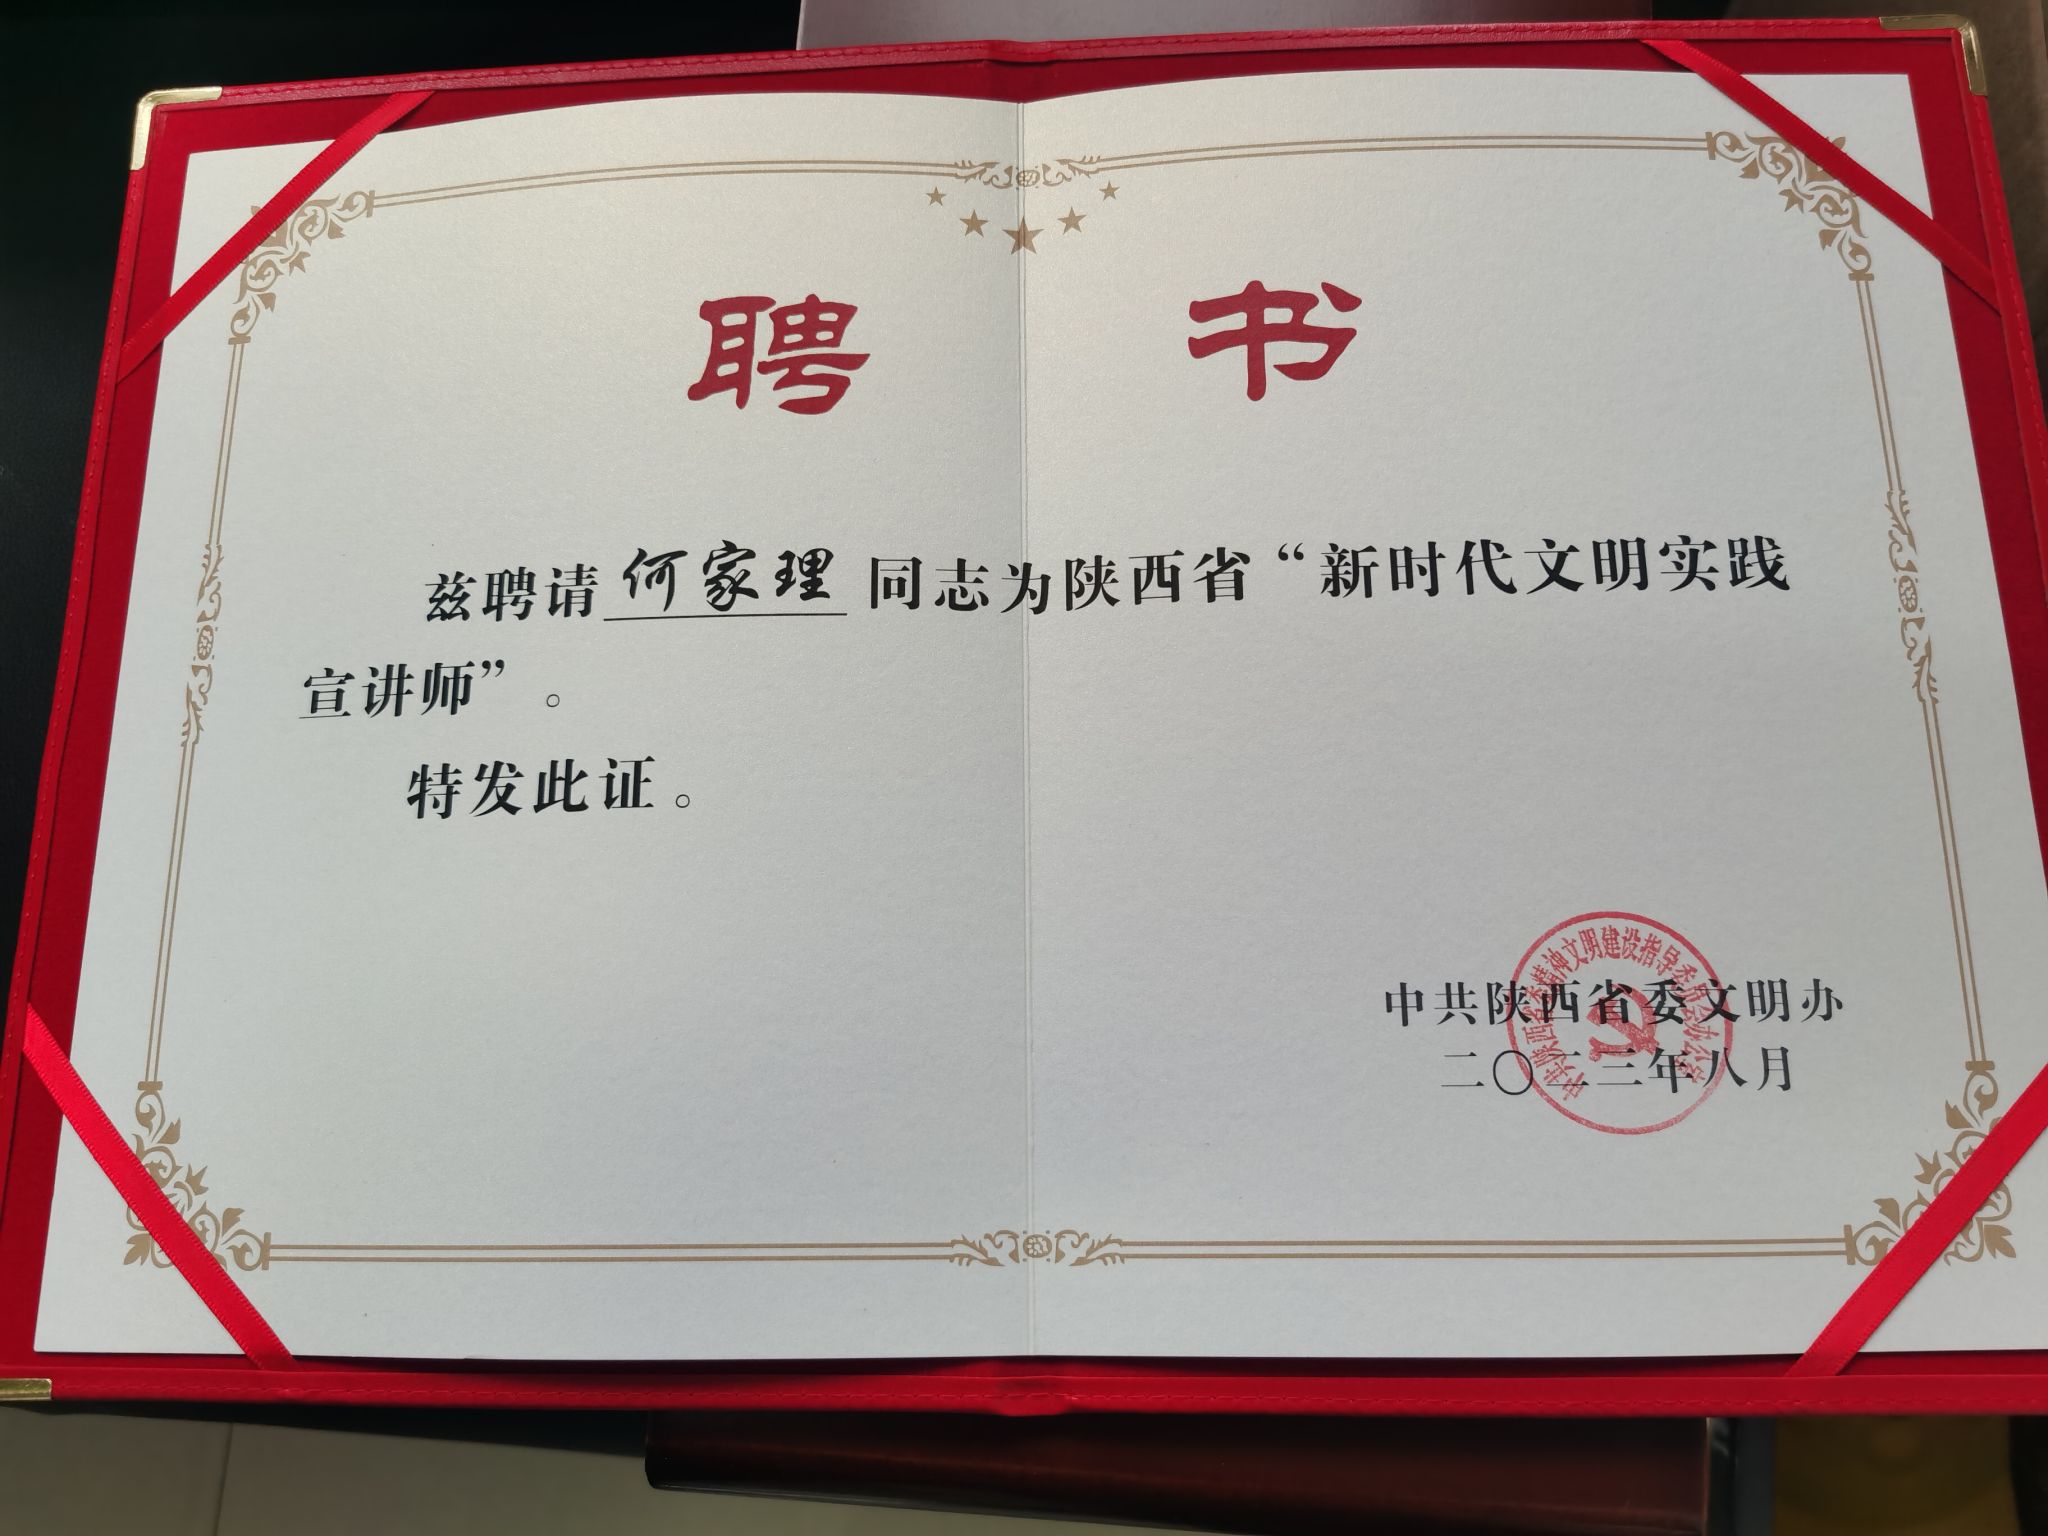 聘 书
兹聘请 何家理 同志为陕西省“新时代文明实践
宣讲师”。
特发此证。
中共陕西省委文明办
二〇二三年八月
中共陕西省委精神文明建设指导委员会办公室